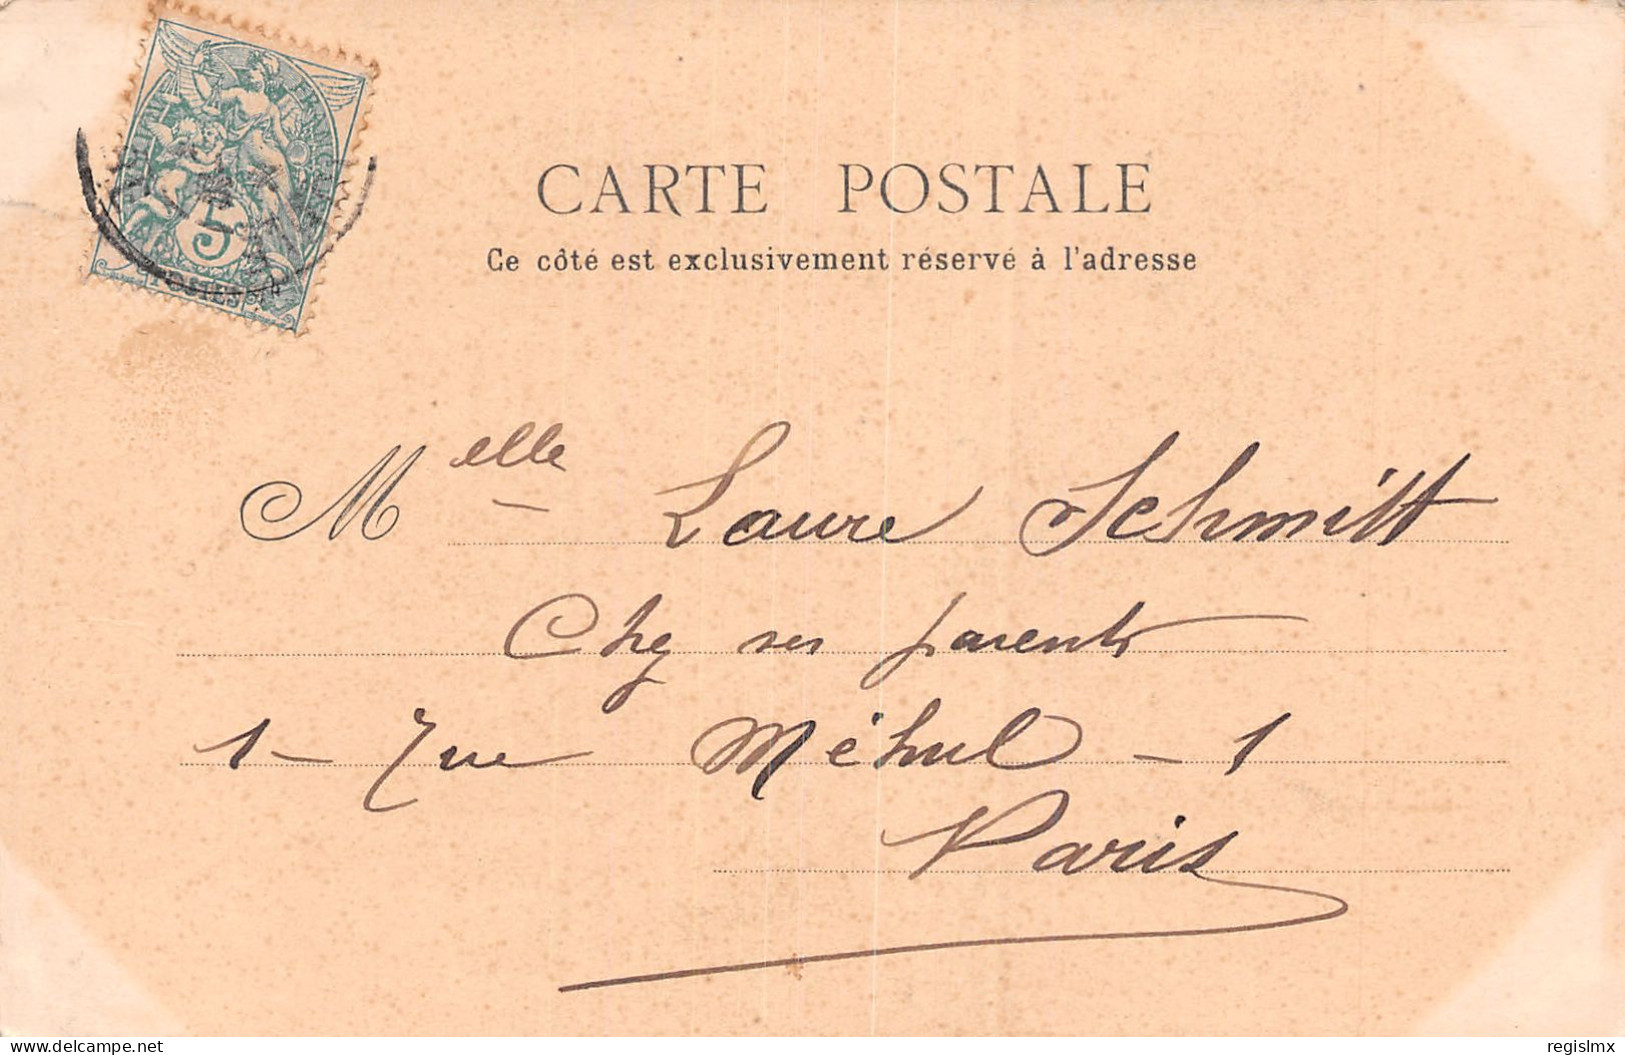 RÉPUBLIQUE FRANÇAISE
5
POSTES
CARTE POSTALE
Ce côté est exclusivement réservé à l'adresse
Melle Laure Schmitt
Chez ses parents
1 - rue Méhul - 1
Paris
delcampe.net
regislmx